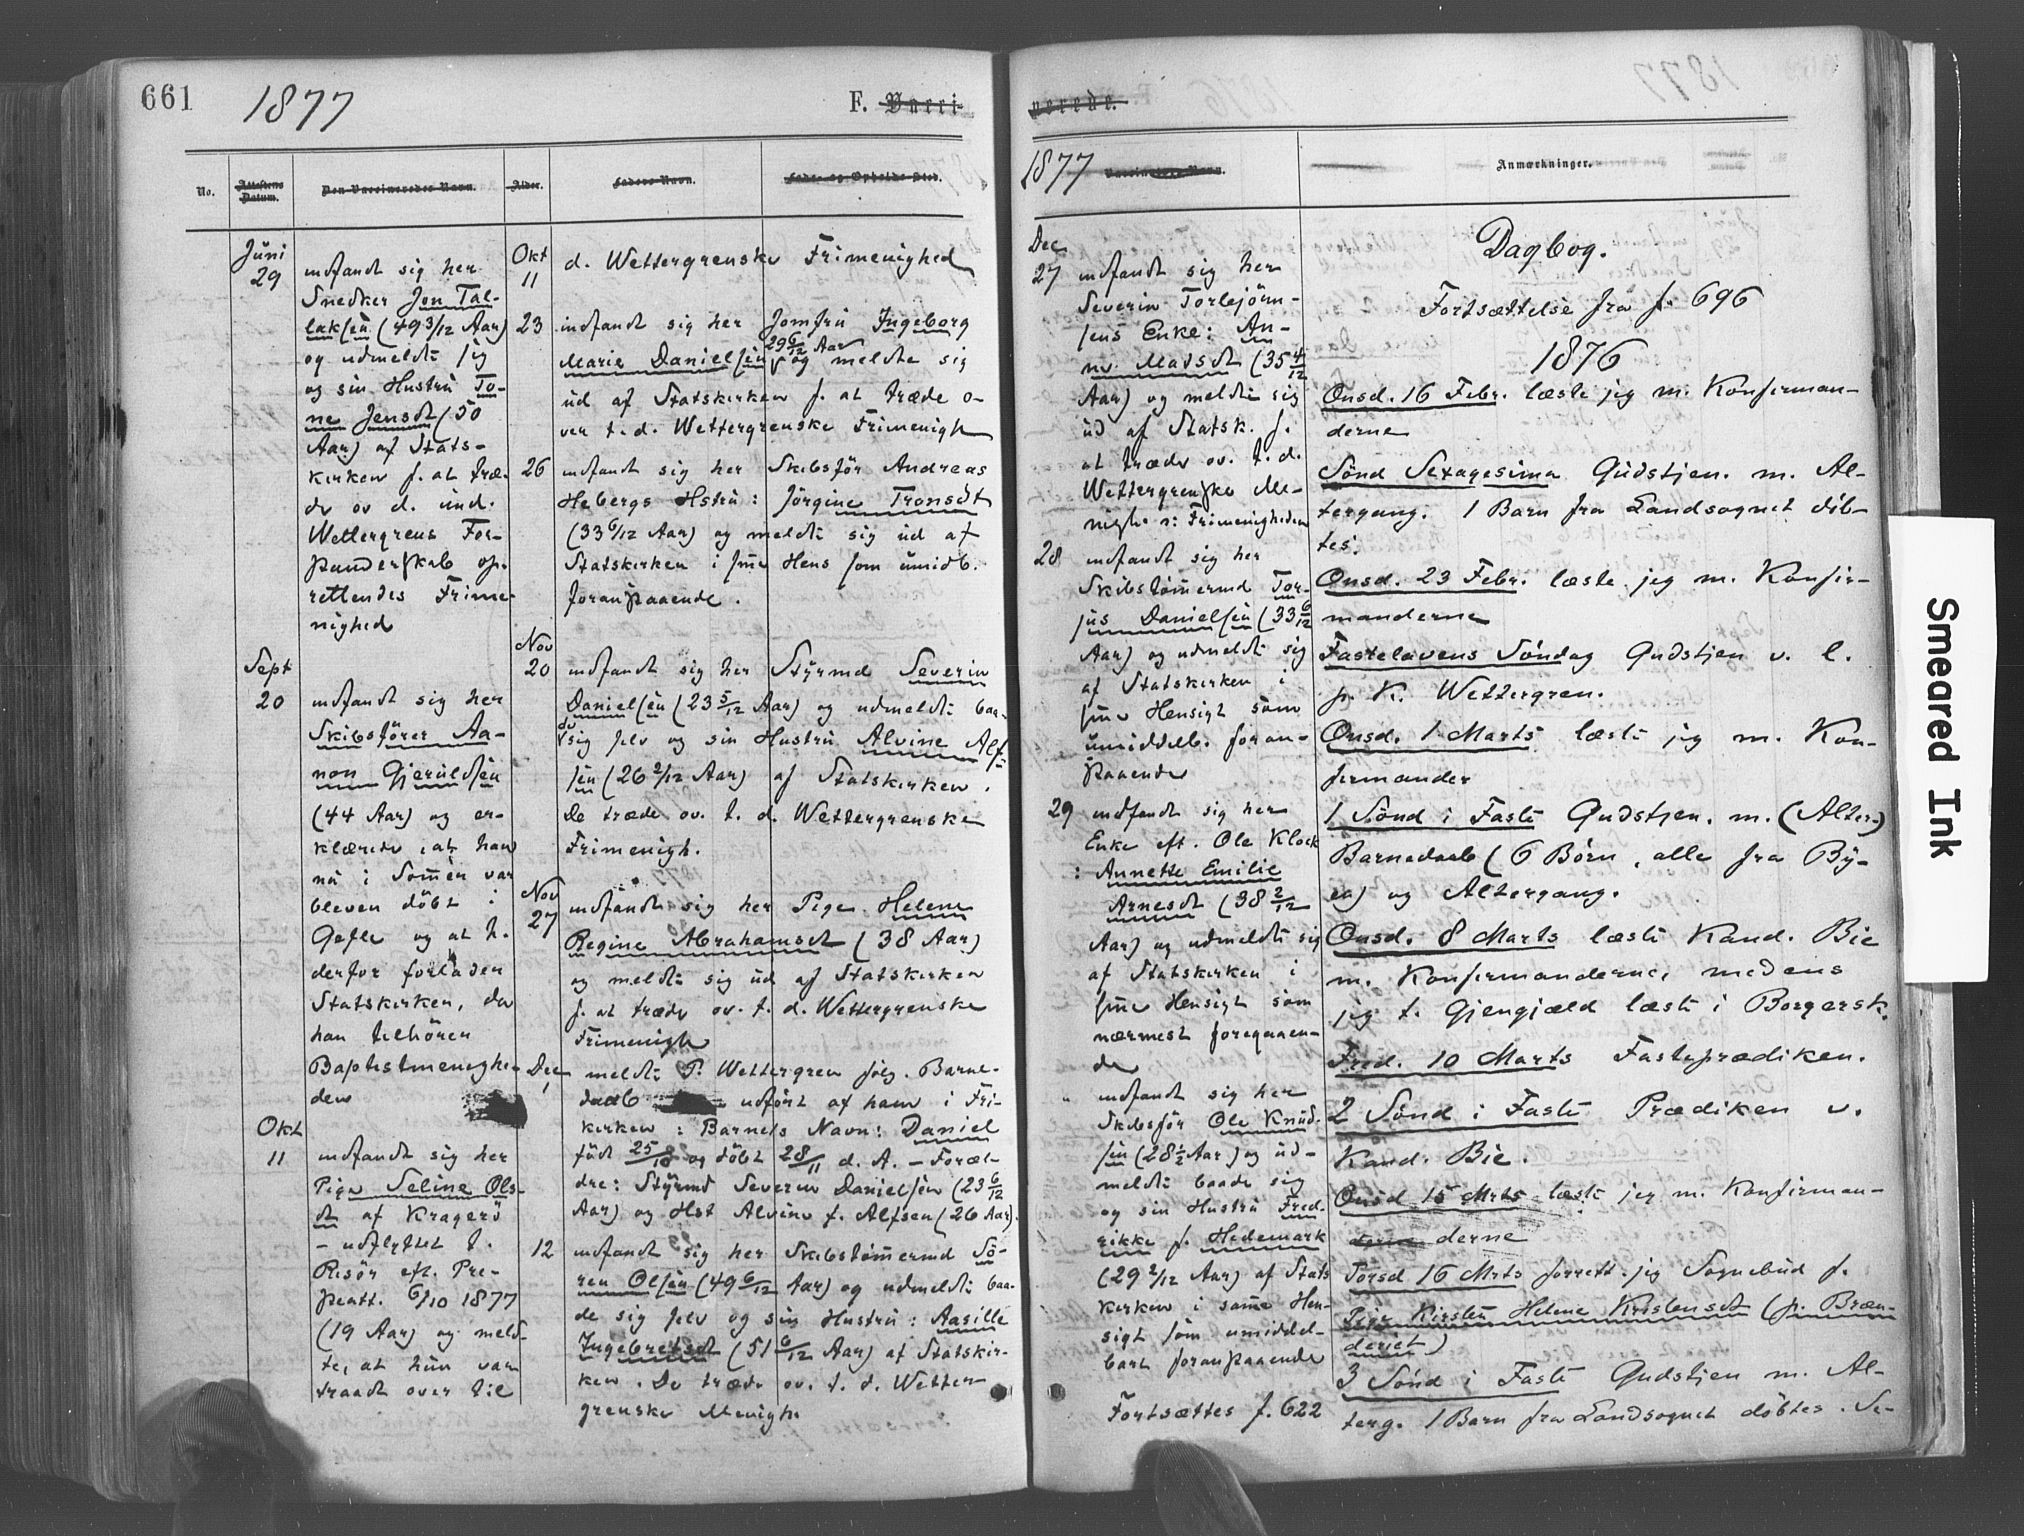 661
1877
F. Vacci-
No.
Attestens Datum.
Den Vaccineredes Navn.
Alder.
Faders Navn.
Føde- og Opholds-Sted.
Juni
29
indfandt sig her
Snedker Jon Tal-
laksen (49 3/12 Aar)
og udmeldte sig
og sin Hustru To-
ne Jensdt (50
Aar) af Stats-
kirken f. at træ-
de ov d. und.
Wettergrens For-
standerskab op-
rettendes Frime-
nighed
Sept
20
indfandt sig her
Skibsfører Aa-
non Gjeruldsen
(44 Aar) og er-
klærede, at han
nu i Somer var
bleven döbt i
Gefle og at h.
derfor forlader
Statskirken, da
han tilhörer
Baptistmenighe-
den
Okt
11
indfandt sig her
Pige Seline Ols-
dt af Kragerö
- udflyttet t.
Risör eft. Pre-
steatt. 6/10 1877
(19 Aar) og meld-
te, at hun var
traadt over til
Okt
11
d. Wettergrenske Frimenighed
23
indfandt sig her Jomfru Ingeborg
Marie Danielsen 29 6/12 Aar og meldte sig
ud af Statskirken f. at træde o-
ver t. d. Wettergrenske Frimenigh
26
indfandt sig her Skibsfør Andreas
Hebergs Hstru: Jörgine Tronsdt
(33 6/12 Aar) og meldte sig ud af
Statskirken i sme Hens som umidb.
foranstaaende.
Nov
20
indfandt sig her Styrmd Severin
Danielsen (23 5/12 Aar) og udmeldte baa-
de sig selv og sin Hustru Alvine Alf-
sen (26 2/12 Aar) af Statskirken.
De træde ov. t. d. Wettergrenske
Frimenigh.
Nov
27
indfandt sig her Pige Helene
Regine Abrahamsdt (38 Aar)
og meldte sig ud af Statskirken
f. at træde ov. t. d. Wettergrenske
Frimenigh
Dec
1
meldte P. Wettergren følg. Barne-
daab udført af ham i Fri-
kirken: Barnets Navn: Daniel
født 25/10 og döbt 28/11 d. A. - Foræl-
dre: Styrmd Severin Danielsen (23 6/12
Aar) og Hst Alvine f. Alfsen (26 Aar).
12
indfandt sig her Skibstömermd Sö-
ren Olsen (49 6/12 Aar) og udmeldte baa-
de sig selv og sin Hustru: Aasille
Ingebretsdt (51 6/12 Aar) af Statskir-
ken. De træde ov. t. d. Wetter-
grenske Menigh
nerede.
1877
Vaccinateurs Navn.
Anmærkninger.
Dec
27
indfandt sig her
Severin Torbjörn-
sens Enke: An-
ne Madsdt (35 4/12
Aar) og meldte sig
ud af Statsk. f.
at træde ov. t. d.
Wettergrenske Me-
nigh ɔ: Frimenigheden
28
indfandt sig her
Skibstømermd Tor-
jus Danielsen (33 6/12
Aar) og udmeldte sig
af Statskirken i
sme Hensigt som
umiddelb. foran-
staaende
29
indfandt sig her
Enke eft. Ole Klock
: Annette Emilie
Arnesdt (38 2/12
Aar) og udmeldte sig
af Statskirken i
sme Hensigt som
nærmest foregaaen-
de
"
indfandt sig her
Skibsför Ole Knud-
sen (28 1/2 Aar) og ud-
meldte baade sig
og sin Hustru Fred-
rikke f. Hedemark
(29 2/12 Aar) af Stats
kirken i same Hen-
sigt som umiddel-
bart foranstaaende
Fortsættes f. 622
Dagbog.
Fortsættelse fra f. 696
1876
Onsd. 16 Febr. læste jeg m. Konfirman-
derne
Sønd Sexagesima Gudstjen. m. Al-
tergang. 1 Barn fra Landsognet döb-
tes.
Onsd. 23 Febr. læste jeg m. Konfir-
manderne
Fastelavens Söndag Gudstjen v. l.
p. K. Wettergren.
Onsd. 1 Marts læste jeg m. Kon-
firmander
1 Sönd i Faste Gudstjen. m. (Alter-)
Barnedaab (6 Børn, alle fra By-
en) og Altergang.
Onsd. 8 Marts læste Kand. Bie
m. Konfirmanderne, medens
jeg t. Gjengjæld læste i Borgersk.
Fred. 10 Marts Fasteprædiken.
2 Sönd i Faste Prædiken v.
Kand. Bie.
Onsd 15 Mrts læste jeg m. Konfirman-
derne derne
Torsd 16 Mrts forrett. jeg Sognebud f.
Pige Kirsten Helene Kristensdt (p. Bræn-
deriet)
3 Sönd i Faste Gudstjen m. Al-
terg. 1 Barn fra Landsognet döbtes. Se-
Smeared Ink